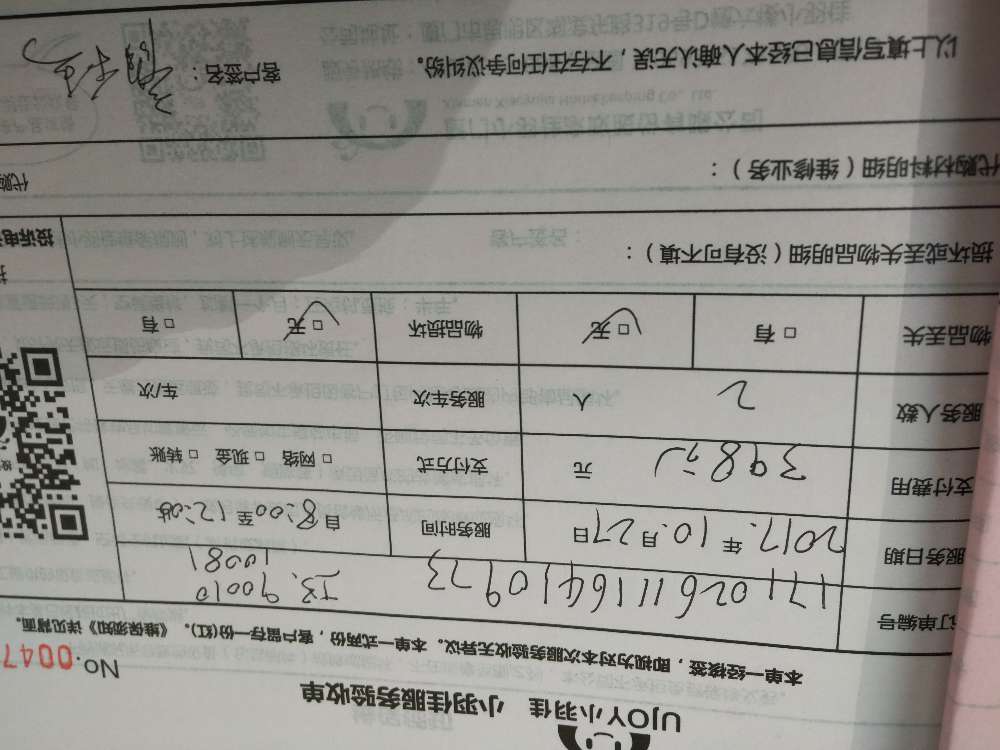 UJOY小羽佳 小羽佳服务验收单
No.0047
本单一经接签，即视为对本次服务验收无异议。本单一式两份，客户留存一份(红)。《维保须知》详见背面。
订单编号 1710261116410973 工3.90010 10081
服务日期 2017.年10.月27日 服务时间 自8:00至12:00时
支付费用 398元 元 支付方式 □网络 □现金 □转账
服务人数 2 人 服务车次 车/次
物品丢失 □有 □无 物品损坏 □无 □有
损坏或丢失物品明细（没有可不填）：
投诉电
代购材料明细（维修业务）：
代购
以上填写信息已经本人确认无误，不存在任何争议纠纷。 客户签名：